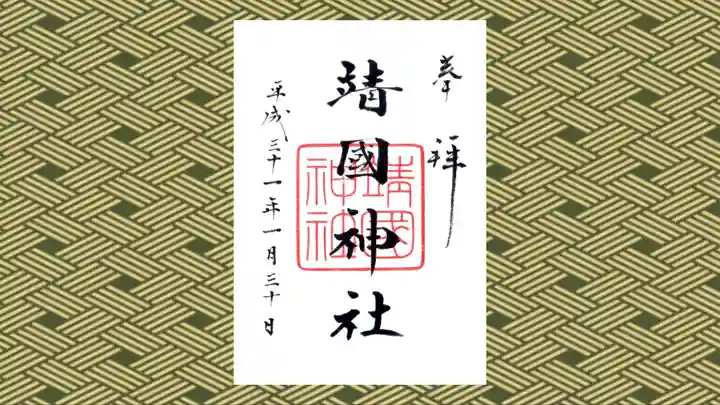 奉拝
靖國神社
靖國神社
平成三十一年一月三十日